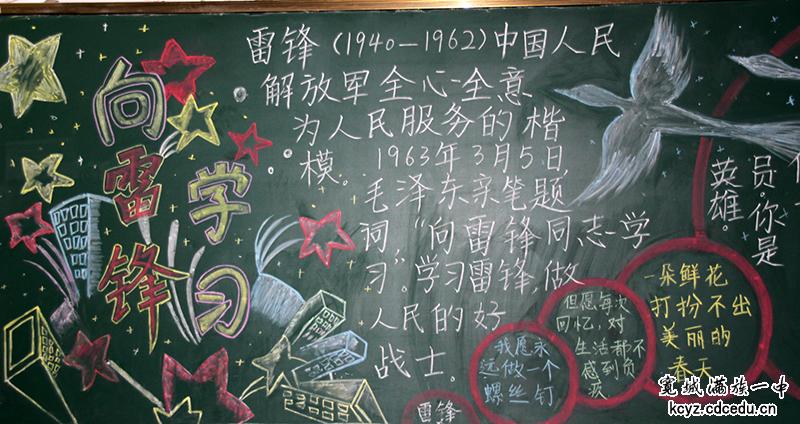 向雷锋
学习
雷锋(1940—1962)中国人民
解放军全心全意
为人民服务的楷
模。1963年3月5日,
毛泽东亲笔题
词。“向雷锋同志学
习”。学习雷锋,做
人民的好
战士。
员。你是
英雄。
一朵鲜花
打扮不出
美丽的
春天
但愿每次
回忆,对
生活都不
感到负
疚
我愿永
远做一个
螺丝钉
雷锋
宽城满族一中
kcyz.cdcedu.cn